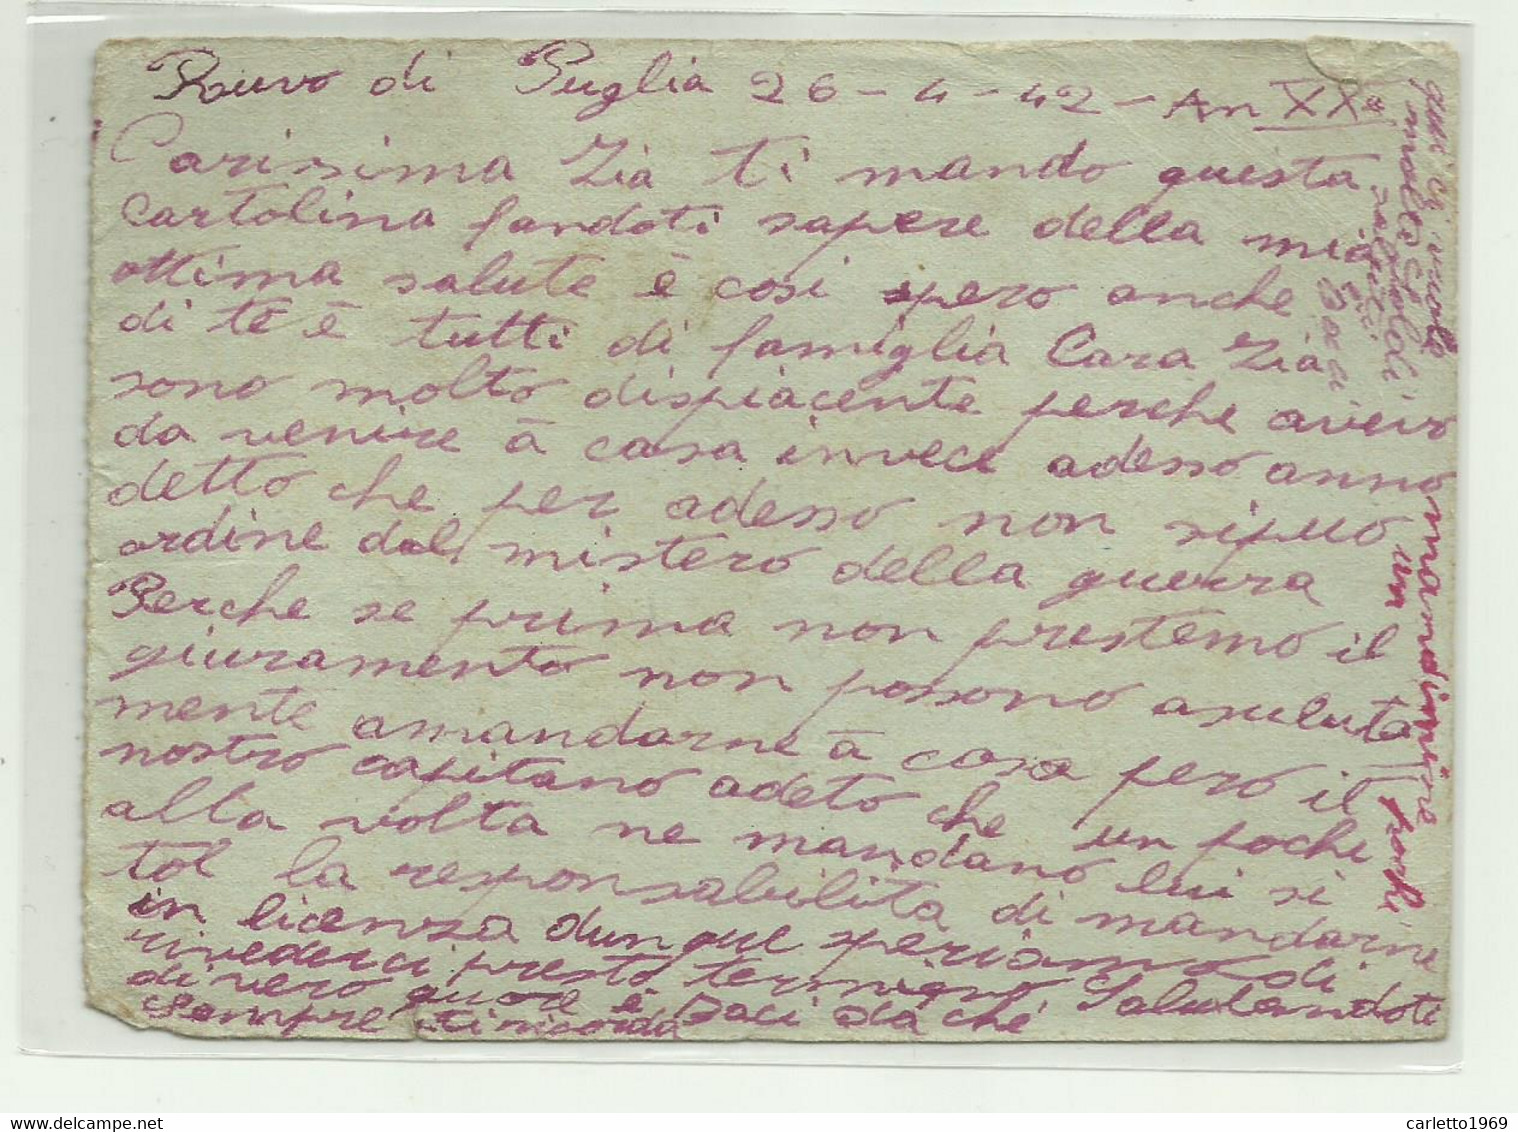 Ruvo di Puglia 26-4-42-An XXº
Carissima Zia ti mando questa
cartolina fandoti sapere della mia
ottima salute è cosi spero anche
di te è tutti di famiglia Cara Zia
sono molto dispiacente perche aveivo
da venire à casa invece adesso anno
detto che per adesso non sipuo
ordine dal mistero della guerra
Perche se prima non prestemo il
giuramento non posono asuluta
mente amandarne à casa però il
nostro capitano adeto che un poche
alla volta ne mandano lui si
tol la responsabilita di mandarne
in licenza dunque speriamo di
rivederci presto termigno Salutandoti
di vero quore è Baci da chè
sempre ti ricorda
qua ci vuole
molte
saluti
Baci
mandimire
un pochi
carletto1969